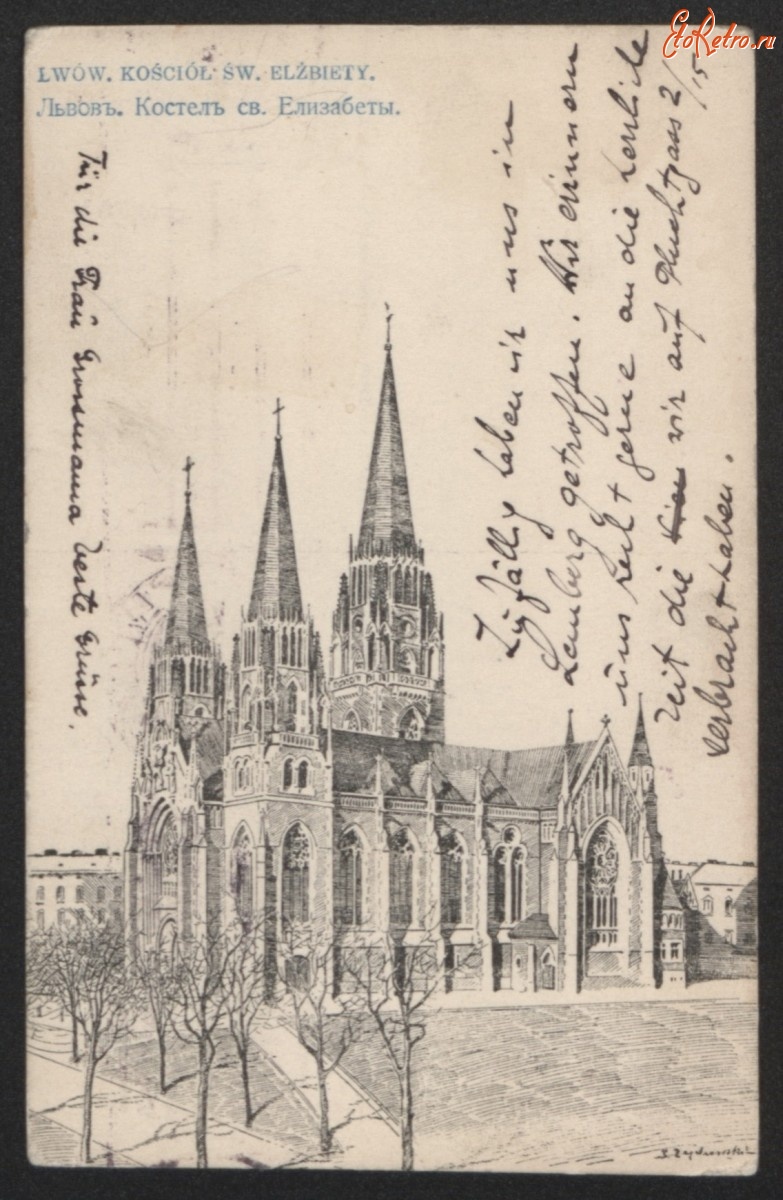 EtoRetro.ru
LWÓW. KOŚCIÓŁ ŚW. ELŻBIETY.
Львовъ. Костелъ св. Елизабеты.
Für die Frau Grossmama beste Grüsse.
Zufällig haben wir uns in
Lemberg getroffen. Wir erinnern
uns recht gerne an die herrliche
Zeit die wir auf 2/15
verbracht haben.